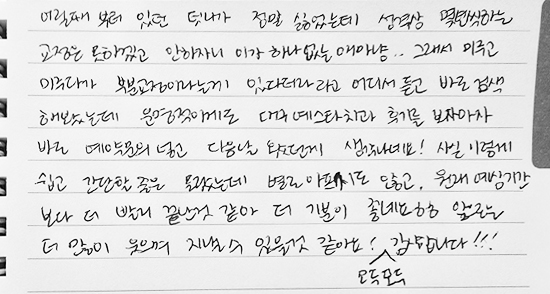 어릴때 부터 있던 덧니가 정말 싫었는데 성격상 몇년씩하는
교정은 못하겠고 안하자니 이가 하나 없는 애마냥.. 그래서 미루고
미루다가 부분교정이라는게 있다더라 라고 어디서 듣고 바로 검색
해봤는데 운명적이게도 대구 예스타치과 후기를 보자마자
바로 예약문의 넣고 다음날 왔던게 생각나네요! 사실 이렇게
쉽고 간단한 줄은 몰랐는데 별로 아프지도 않고, 원래 예상기간
보다 더 빨리 끝난것 같아 더 기분이 좋네요ㅎㅎ 앞으로는
더 많이 웃으며 지낼수 있을것 같아요! 감사합니다!!!
모두모두